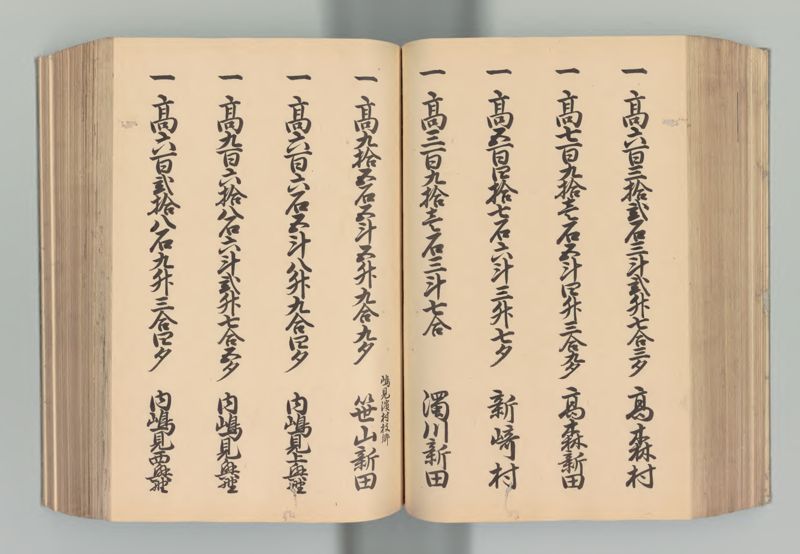 一 高六百三拾弐石三斗弐升七合三夕 高森村
一 高七百九拾壱石五斗四升三合九夕 高森新田
一 高五百四拾七石六斗三升七夕 新崎村
一 高三百九拾壱石三斗七合 濁川新田
嶋見濱村枝郷
一 高九拾五石五斗五升九合九夕 笹山新田
一 高六百六石五斗八升九合四夕 内嶋見上興野
一 高九百六拾八石六斗弐升七合五夕 内嶋見興野
一 高六百弐拾八石九升三合四夕 内嶋見西興野